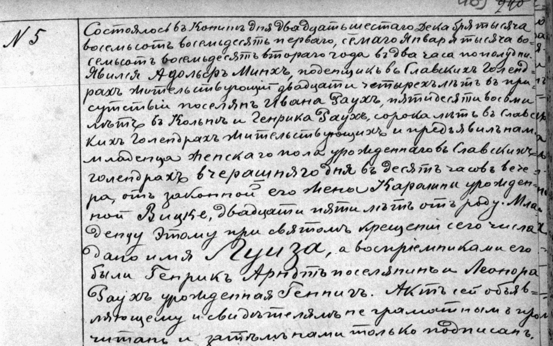 N 5
Состоялось въ Конинѣ дня двадцать шестаго Декабря тысяча
восемьсотъ восемьдесятъ перваго, седьмаго Января тысяча во-
семьсотъ восемьдесятъ втораго года въ два часа пополудни.
Явился Адольфъ Минхъ, поденщикъ въ Славскихъ Голенд-
рахъ жительствующій двадцати четырехъ лѣтъ въ при-
сутствіи поселянъ Ивана Раухъ, пятидесяти восьми
лѣтъ въ и Генрика Раухъ, сорока лѣтъ въ Славс-
кихъ Голендрахъ жительствующихъ, и предъявилъ намъ
младенца женскаго пола урожденнаго въ Славскихъ
голендрахъ вчерашняго дня въ десять часовъ вече-
ра, отъ законной его жены Каролины урожден-
ной Вицке, двадцати пяти лѣтъ отъ роду. Мла-
денцу этому при святомъ крещеніи сего числа
дано имя Луиза, а воспріемниками его
были Генрикъ Арндтъ поселянинъ и Леонора
Раухъ урожденная Геннигъ. Актъ сей объяв-
ляющему и свидѣтелямъ неграмотнымъ про-
читанъ и затѣмъ нами только подписанъ.